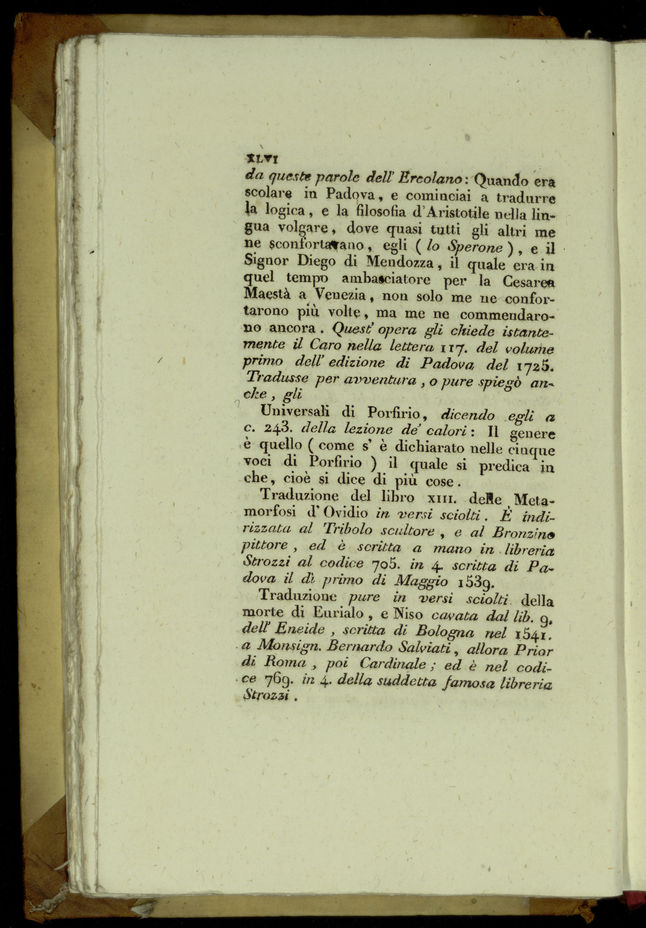 XLVI
da queste parole dell' Ercolano: Quando era
scolare in Padova, e cominciai a tradurre
la logica, e la filosofia d'Aristotile nella lin-
gua volgare, dove quasi tutti gli altri me
ne sconfortavano, egli ( lo Sperone ), e il
Signor Diego di Mendozza, il quale era in
quel tempo ambasciatore per la Cesarea
Maestà a Venezia, non solo me ne confor-
tarono più volte, ma me ne commendaro-
no ancora. Quest' opera gli chiede istante-
mente il Caro nella lettera 117. del volume
primo dell' edizione di Padova del 1725.
Tradusse per avventura, o pure spiegò an-
che, gli
Universali di Porfirio, dicendo egli a
c. 243. della lezione de' calori: Il genere
è quello ( come s' è dichiarato nelle cinque
voci di Porfirio ) il quale si predica in
che, cioè si dice di più cose.
Traduzione del libro XIII. delle Meta-
morfosi d' Ovidio in versi sciolti. È indi-
rizzata al Tribolo scultore, e al Bronzino
pittore, ed è scritta a mano in libreria
Strozzi al codice 705. in 4. scritta di Pa-
dova il dì primo di Maggio 1539.
Traduzione pure in versi sciolti della
morte di Eurialo, e Niso cavata dal lib. 9.
dell' Eneide, scritta di Bologna nel 1541.
a Monsign. Bernardo Salviati, allora Prior
di Roma, poi Cardinale; ed è nel codi-
ce 769. in 4. della suddetta famosa libreria
Strozzi.